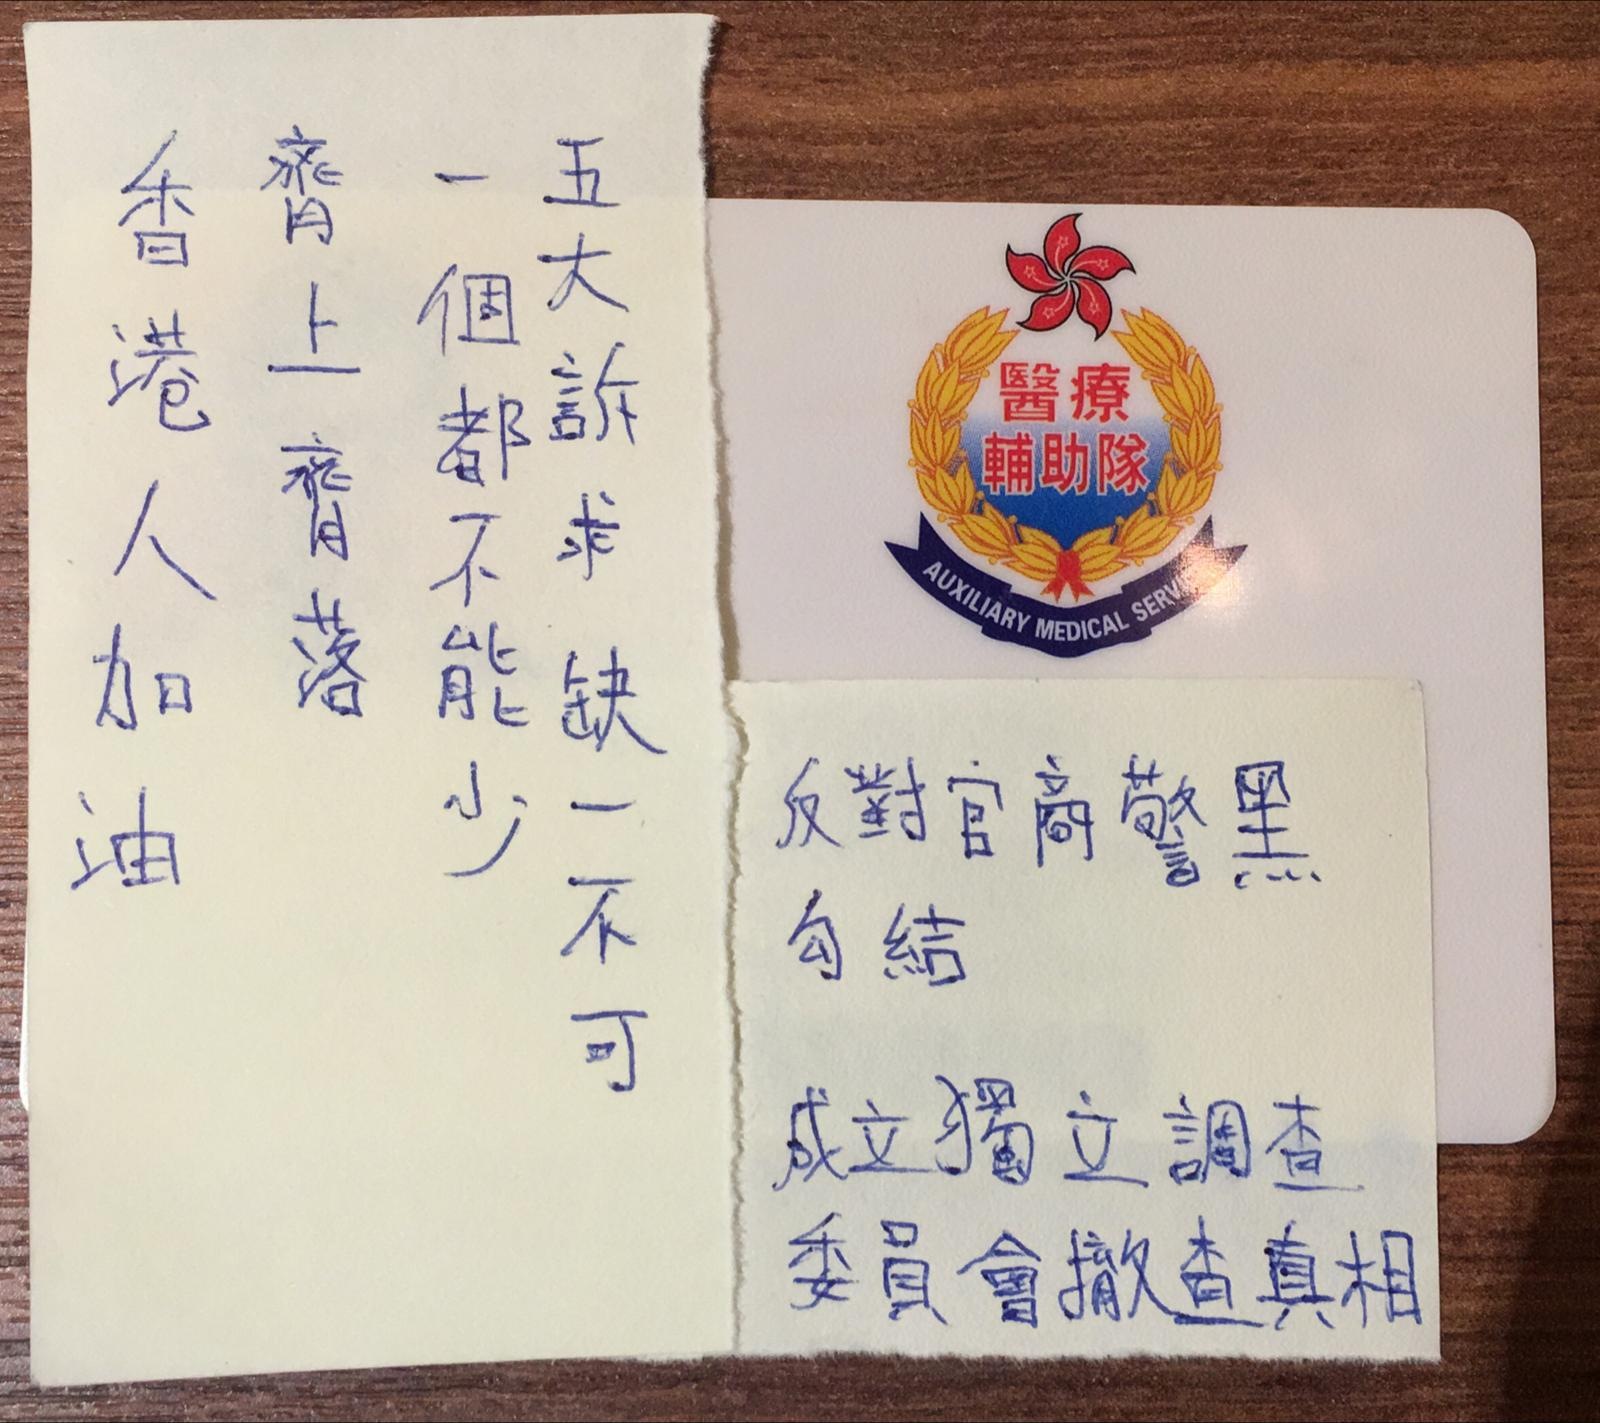 五大訴求 缺一不可
一個都不能少
齊上齊落
香港人加油
醫療
輔助隊
AUXILIARY MEDICAL SERVI
反對官商警黑
勾結
成立獨立調查
委員會撤查真相